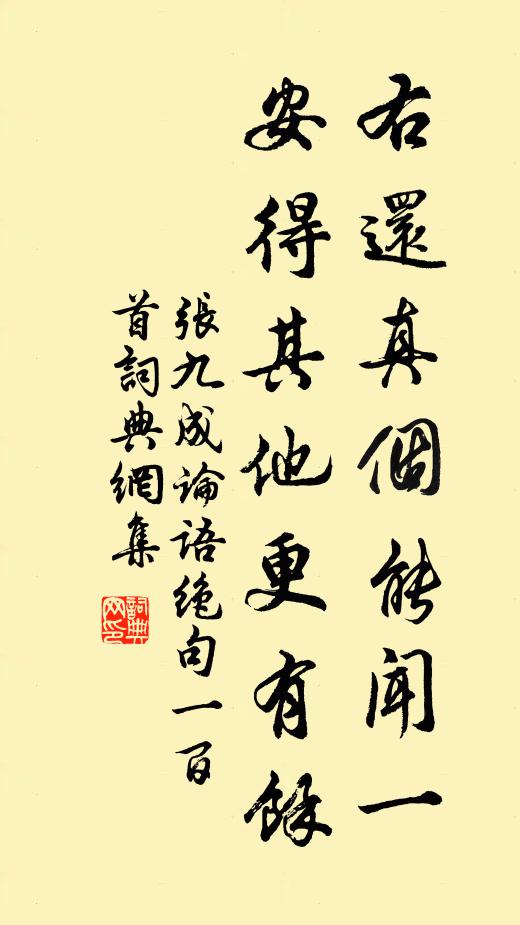 右還真個能聞一
安得其他更有餘
張九成論語絶句一百
首詞典網集
詞典
网印